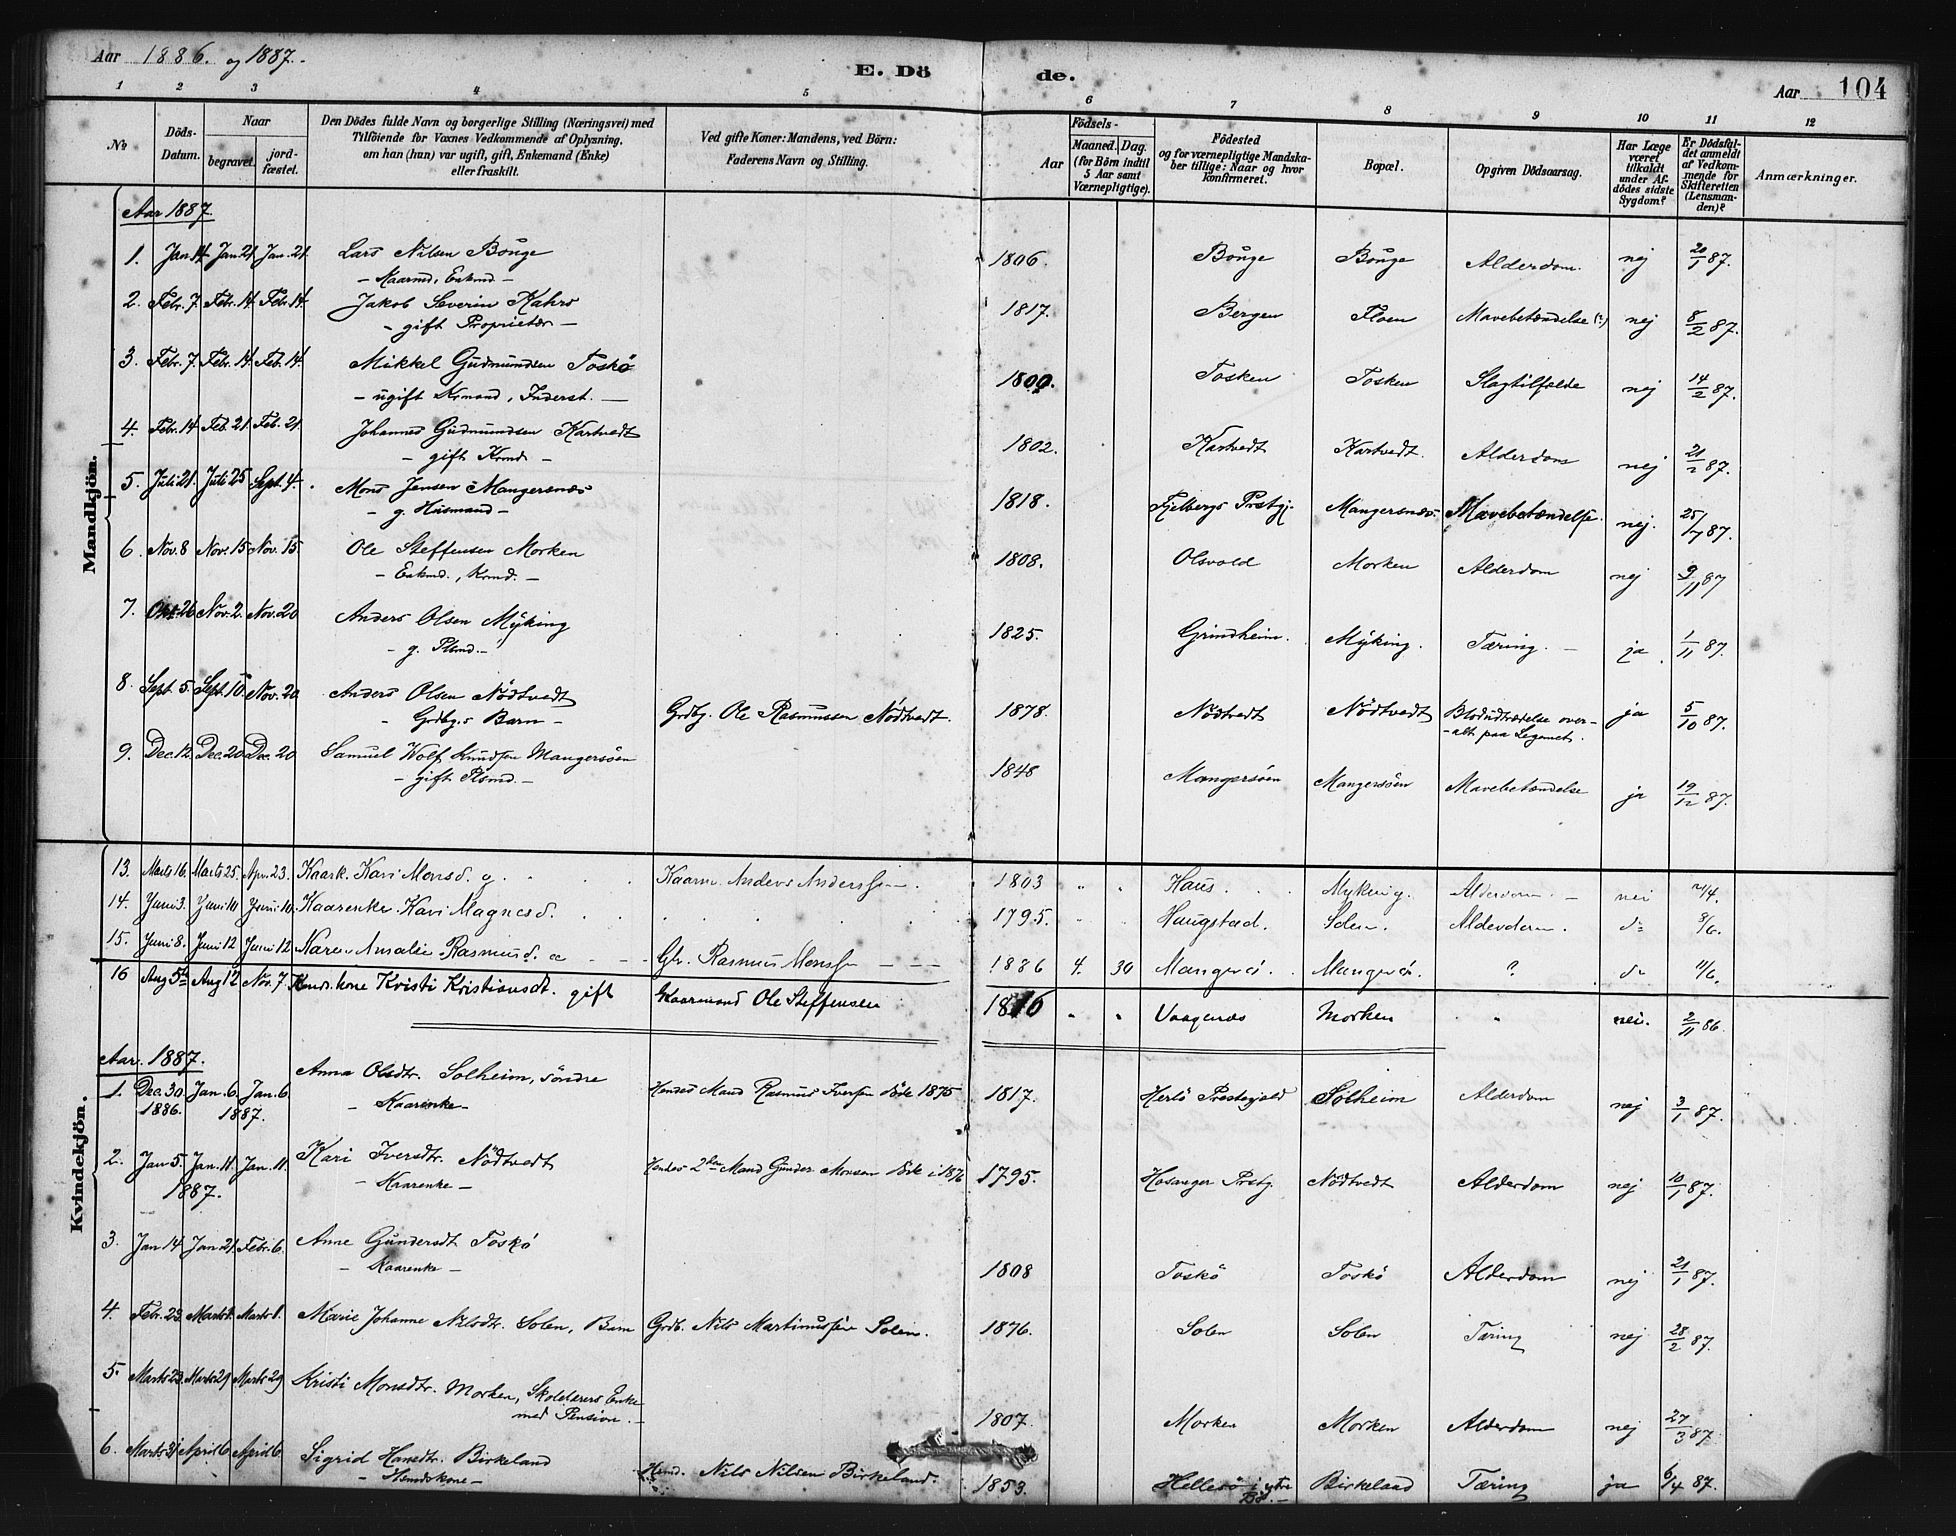 Aar 1886. og 1887.
E. Dö de.
Aar 104
1 2 3 4 5 6 7 8 9 10 11 12
No
Döds-Datum.
Naar
begravet.
jord-fæstet.
Den Dödes fulde Navn og borgerlige Stilling (Næringsvei) med
Tilföiende for Voxnes Vedkommende af Oplysning,
om han (hun) var ugift, gift, Enkemand (Enke)
eller fraskilt.
Ved gifte Koner: Mandens, ved Börn:
Faderens Navn og Stilling.
Födsels-
Aar
Maaned. Dag.
(for Börn indtil
5 Aar samt
Værnepligtige).
Födested
og for værnepligtige Mandska-
ber tillige: Naar og hvor
konfirmeret.
Bopæl.
Opgiven Dödsaarsag.
Har Læge
været
tilkaldt
under Af-
dödes sidste
Sygdom?
Er Dödsfal-
det anmeldt
af Vedkom-
mende for
Skifteretten
(Lensman-
den)?
Anmærkninger.
Mandkjön.
Aar 1887.
1. Jan. 14 Jan. 21 Jan. 21. Lars Nilsen Bouge 1806. Bouge Bouge Alderdom. nej 20/1 87.
- Kaarmd, Enkmd -
2. Febr. 7. Febr. 14. Febr. 14. Jakob Severin Kahrs 1817. Bergen Floen Mavebetændelse (?) nej 8/2 87.
- gift Proprietær -
3. Febr. 7. Febr. 14. Feb. 14. Mikkel Gudmundsen Toskö 1809. Tosken Tosken Slagtilfælde nej 14/2 87.
- ugift Krmand, Inderst. -
4. Febr. 14 Feb. 21. Feb. 21. Johannes Gudmundsen Kartvedt 1802. Kartvedt Kartvedt. Alderdom nej 21/2 87.
- gift Krmd. -
5. Juli 21. Juli 25 Sept. 4. Mons Jensen Mangersnæs 1818. Fjelbergs Prstgj. Mangersnæs Mavebetændelse. nej. 25/7 87.
- g. Husmand -
6. Nov. 8 Nov. 15 Nov. 15. Ole Steffensen Morken 1808. Olsvold Morken Alderdom nej 9/11 87
- Enkmd., Krmd. -
7. Okt. 26 Nov. 2. Nov. 20 Anders Olsen Myking 1825. Grindheim. Myking. Tæring. - ja 1/11 87.
- g. Plsmd. -
8. Sept. 5. Sept. 10. Nov. 20 Anders Olsen Nödtvedt Grdbg. Ole Rasmussen Nödtvedt. 1878. Nödtvedt Nödtvedt Blodudtrædelse over- ja 5/10 87.
- Grdbg.s Barn - -alt paa Legemet.
9. Dec. 12. Dec. 20 Dec. 20 Samuel Wolf Knudsen Mangersöen 1848 Mangersöen Mangersöen Mavebetændelse ja 19/12 87.
- gift Plsmd. -
13. Marts 16. Marts 25. Apr. 23. Kaark. Kari Monsd. g. Kaarm. Anders Anderssen. 1803 " " Haus. Myking. Alderdom. - nei 21/4.
14. Juni 3. Juni 10 Juni 10. Kaarenke Kari Magnesd. 1795. " " Haugstad. Solen. Alderdom. do 8/6.
15. Juni 8. Juni 12 Juni 12 Karen Amalie Rasmusd. Gbr. Rasmus Monssen - - - 1886 4. 30 Mangerö. Mangerö. ? do 11/6.
16 Aug 5te Aug 12 Nov. 7 Kmds. kone Kristi Kristiansdt. gift Kaarmand Ole Steffensen 1816 " " Vaagenæs Morken " nei. 2/11 86.
Kvindekjön.
Aar. 1887.
1. Dec. 30. Jan. 6. Jan. 6 Anna Olsdtr. Solheim, söndre Hendes Mand Rasmus Iversen döde 1875 1817. Herlö Prestegjeld Solheim Alderdom nej 3/1 87.
1886. 1887. - Kaarenke -
2. Jan. 5. Jan. 11. Jan. 11. Kari Iversdtr. Nödtvedt Hendes 2den Mand Gunder Monsen döde i 1876 1795. Hosanger Prstg. Nödtvedt Alderdom nej 10/1 87.
1887. - Kaarenke -
3. Jan 14. Jan 21. Febr. 6. Anne Gundersdt Toskö 1808 Toskö Toskö Alderdom nej 21/1 87.
- Kaarenke -
4. Febr. 23. Marts 1. Marts 1. Marie Johanne Nilsdtr. Solen, Barn Grdb. Nils Martinussen Solen. 1876. Solen Solen Tæring nej 28/2 87.
5. Marts 23. Marts 29 Marts 29 Kristi Monsdtr. Morken, Skolelærers Enke 1807. Morken Morken Alderdom nej 27/3 87
med Pension. -
6. Marts 31 April 6. April 6. Sigrid Hansdtr. Birkeland Hmd. Nils Nilsen Birkeland. 1853. Hellesö i ytre Birkeland Tæring ja 6/4 87.
- Hmdskone -